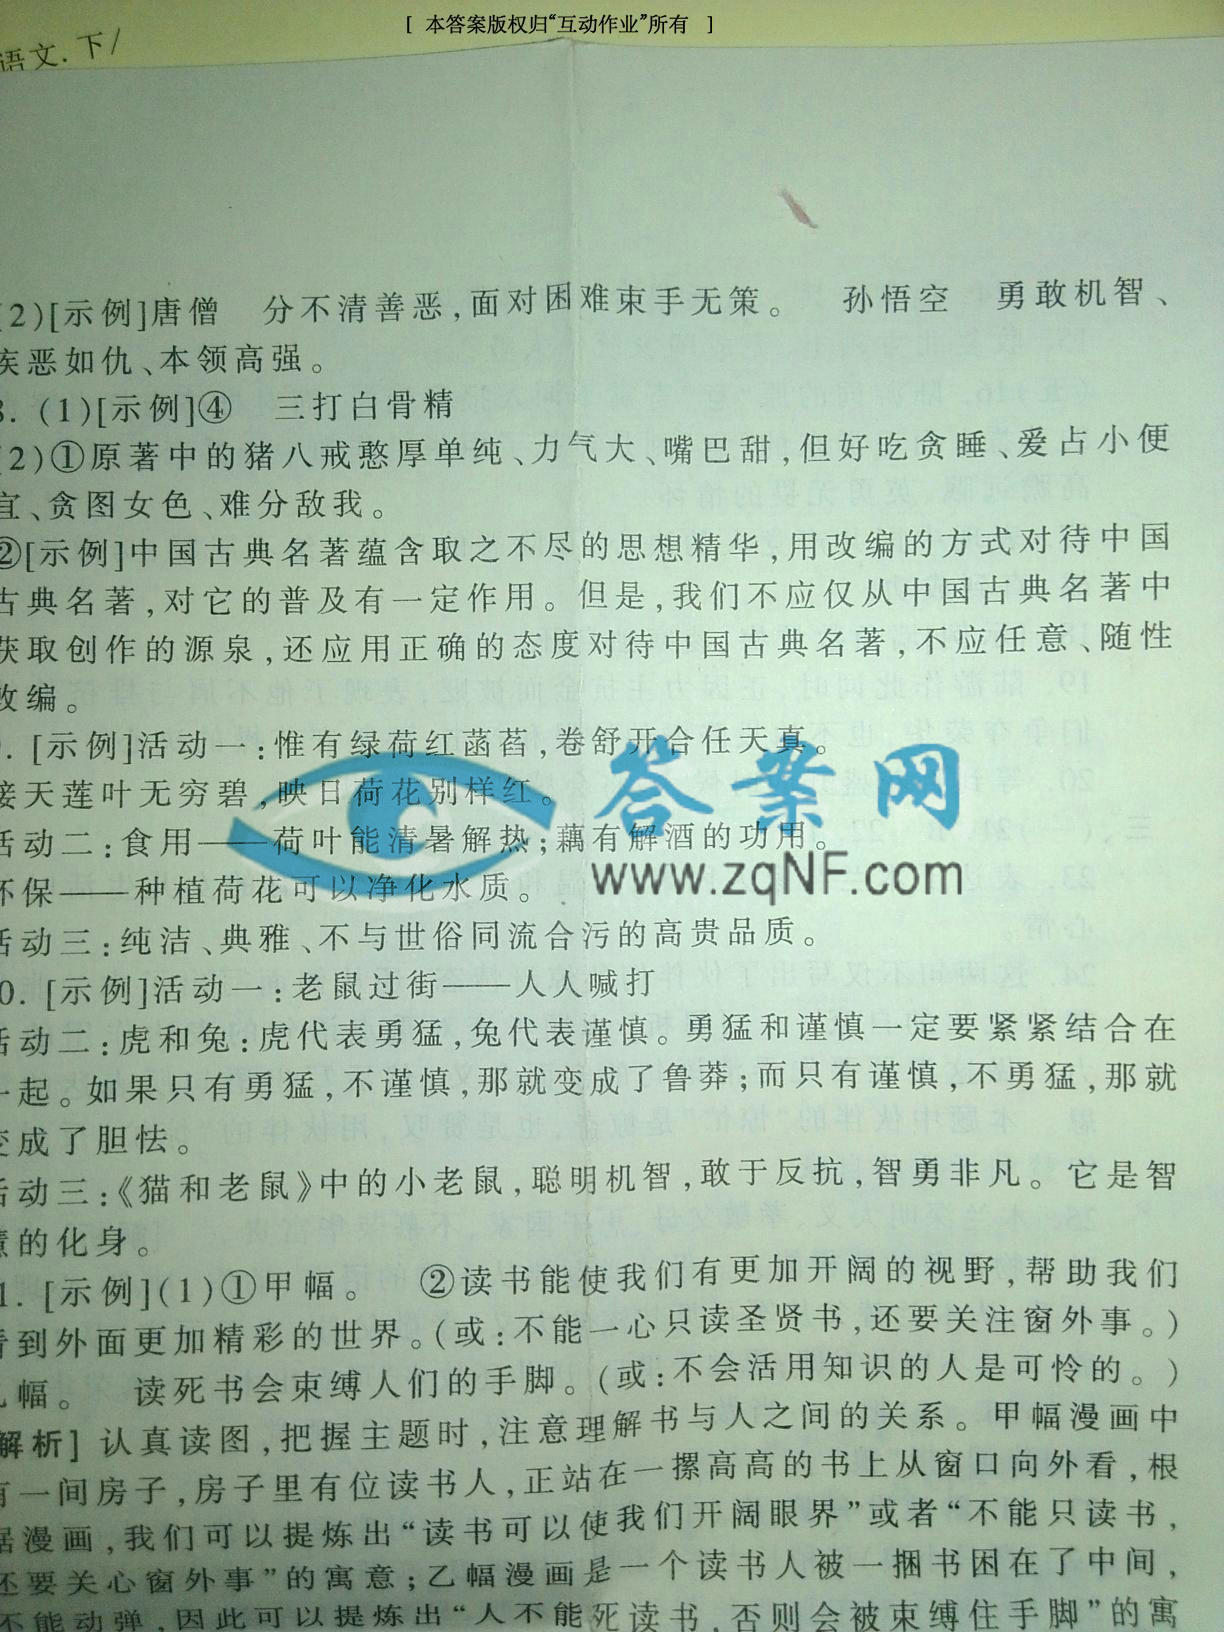 [ 本答案版权归“互动作业”所有 ]
语文.下/
(2)[示例]唐僧 分不清善恶,面对困难束手无策。 孙悟空 勇敢机智、
疾恶如仇、本领高强。
8. (1)[示例]④ 三打白骨精
(2)①原著中的猪八戒憨厚单纯、力气大、嘴巴甜,但好吃贪睡、爱占小便
宜、贪图女色、难分敌我。
②[示例]中国古典名著蕴含取之不尽的思想精华,用改编的方式对待中国
古典名著,对它的普及有一定作用。但是,我们不应仅从中国古典名著中
获取创作的源泉,还应用正确的态度对待中国古典名著,不应任意、随性
改编。
. [示例]活动一:惟有绿荷红菡萏,卷舒开合任天真。
接天莲叶无穷碧,映日荷花别样红。
活动二:食用——荷叶能清暑解热;藕有解酒的功用。
环保——种植荷花可以净化水质。
活动三:纯洁、典雅、不与世俗同流合污的高贵品质。
0. [示例]活动一:老鼠过街——人人喊打
活动二:虎和兔:虎代表勇猛,兔代表谨慎。勇猛和谨慎一定要紧紧结合在
一起。如果只有勇猛,不谨慎,那就变成了鲁莽;而只有谨慎,不勇猛,那就
变成了胆怯。
活动三:《猫和老鼠》中的小老鼠,聪明机智,敢于反抗,智勇非凡。它是智
慧的化身。
1. [示例](1)①甲幅。 ②读书能使我们有更加开阔的视野,帮助我们
看到外面更加精彩的世界。(或:不能一心只读圣贤书,还要关注窗外事。)
乙幅。 读死书会束缚人们的手脚。(或:不会活用知识的人是可怜的。)
[解析] 认真读图,把握主题时,注意理解书与人之间的关系。甲幅漫画中
有一间房子,房子里有位读书人,正站在一摞高高的书上从窗口向外看,根
据漫画,我们可以提炼出“读书可以使我们开阔眼界”或者“不能只读书,
还要关心窗外事”的寓意;乙幅漫画是一个读书人被一捆书困在了中间,
不能动弹,因此可以提炼出“人不能死读书,否则会被束缚住手脚”的寓
答案网
www.zqNF.com